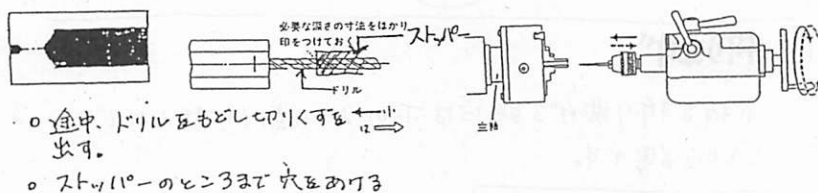 必要な深さの寸法をはかり
印をつけておく
ストッパー
ドリル
主軸
○ 途中、ドリルをもどして切りくずを
出す。
○ ストッパーのところまで穴をあける